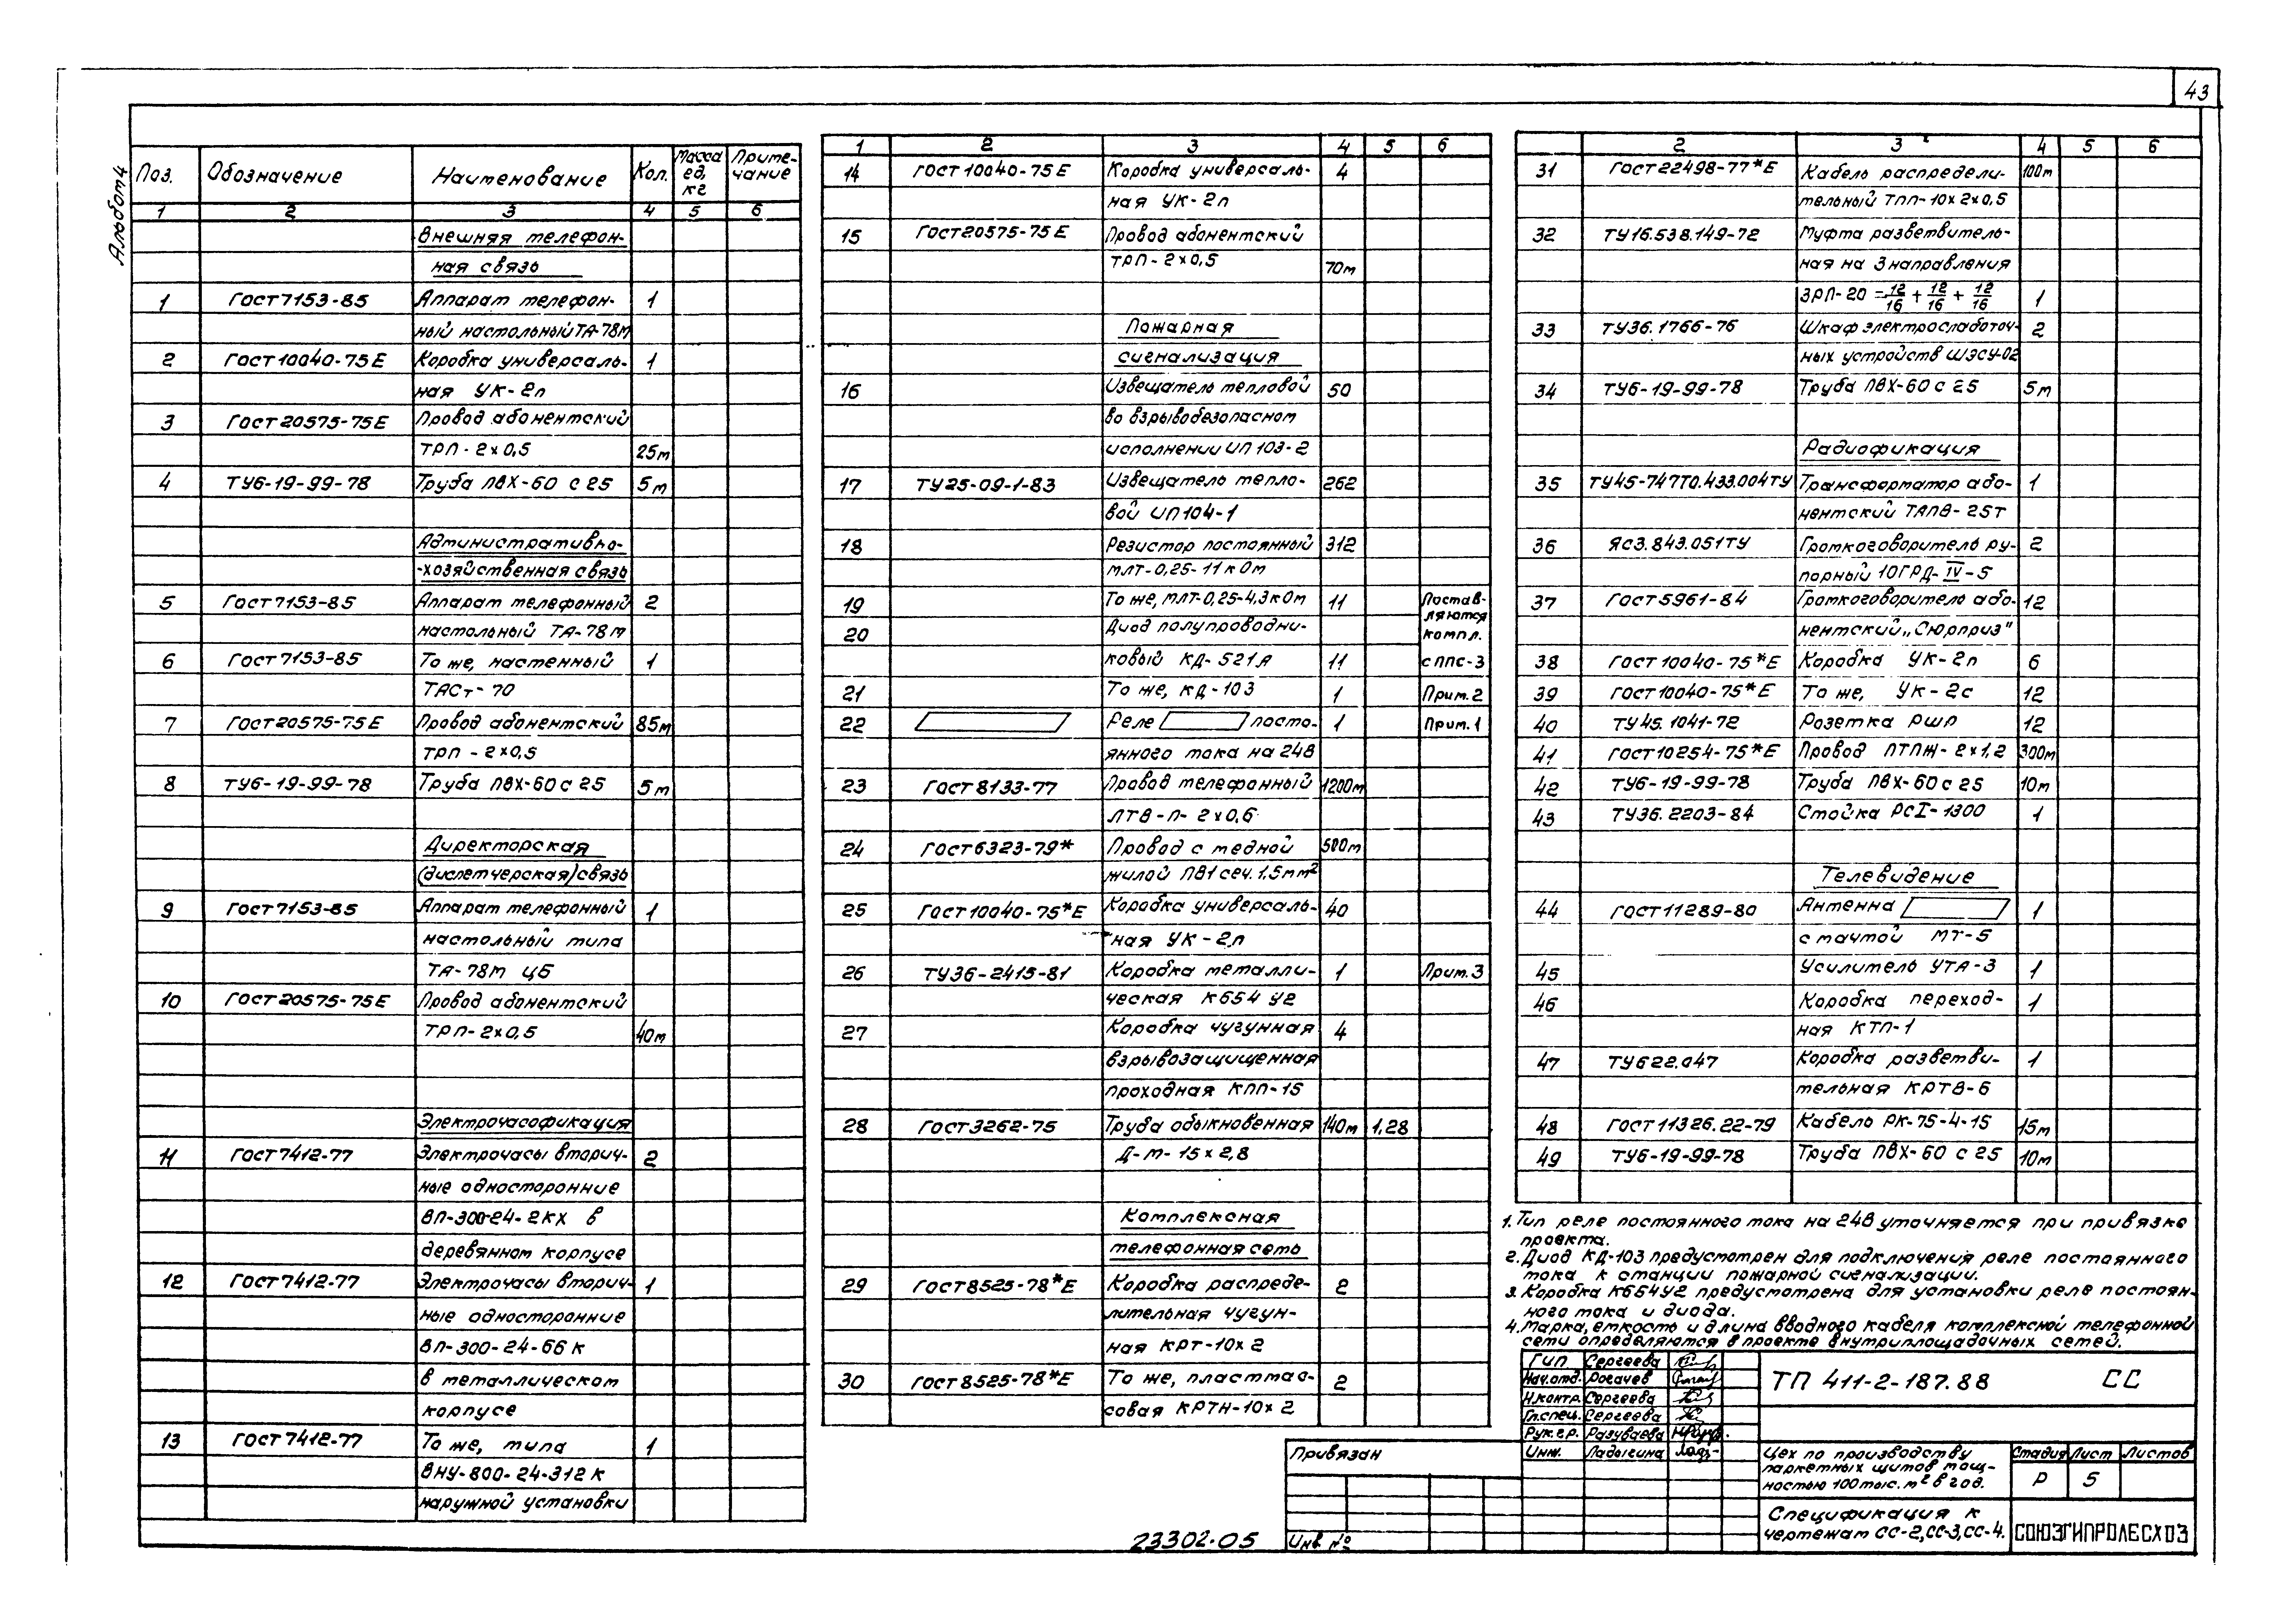 43
Альбом 4
Поз. Обозначение Наименование Кол. Масса ед, кг Приме-чание
1 2 3 4 5 6
Внешняя телефон-
ная связь
1 ГОСТ 7153-85 Аппарат телефон- 1
ный настольный ТА-78м
2 ГОСТ 10040-75Е Коробка универсаль- 1
ная УК-2п
3 ГОСТ 20575-75Е Провод абонентский
ТРП-2х0,5 25м
4 ТУ6-19-99-78 Труба ПВХ-60 с 25 5м
Административно-
-хозяйственная связь
5 ГОСТ 7153-85 Аппарат телефонный 2
настольный ТА-78м
6 ГОСТ 7153-85 То же, настенный 1
ТАСт-70
7 ГОСТ 20575-75Е Провод абонентский 85м
ТРП-2х0,5
8 ТУ6-19-99-78 Труба ПВХ-60 с 25 5м
Директорская
(диспетчерская) связь
9 ГОСТ 7153-85 Аппарат телефонный 1
настольный типа
ТА-78м ЦБ
10 ГОСТ 20575-75Е Провод абонентский
ТРП-2х0,5 40м
Электрочасофикация
11 ГОСТ 7412-77 Электрочасы вторич- 2
ные односторонние
ВП-300-24-2КХ в
деревянном корпусе
12 ГОСТ 7412-77 Электрочасы вторич- 1
ные односторонние
ВП-300-24-66К
в металлическом
корпусе
13 ГОСТ 7412-77 То же, типа 1
ВНУ-800-24-312К
наружной установки
1 2 3 4 5 6
14 ГОСТ 10040-75Е Коробка универсаль- 4
ная УК-2п
15 ГОСТ 20575-75Е Провод абонентский
ТРП-2х0,5 70м
Пожарная
сигнализация
16 Извещатель тепловой 50
во взрывобезопасном
исполнении ИП 103-2
17 ТУ25-09-1-83 Извещатель тепло- 262
вой ИП104-1
18 Резистор постоянный 312
МЛТ-0,25-11кОм
19 То же, МЛТ-0,25-4,3кОм 11 Постав-
ляются
20 Диод полупроводни- компл.
ковый КД-521А 11 с ППС-3
21 То же, КД-103 1 Прим.2
22 Реле посто- 1 Прим.1
янного тока на 24В
23 ГОСТ 8133-77 Провод телефонный 1200м
ЛТВ-П-2х0,6
24 ГОСТ 6323-79* Провод с медной 500м
жилой ПВ1 сеч. 1,5мм²
25 ГОСТ 10040-75*Е Коробка универсаль- 40
ная УК-2п
26 ТУ36-2415-81 Коробка металли- 1 Прим.3
ческая К654 У2
27 Коробка чугунная 4
взрывозащищенная
проходная КПП-15
28 ГОСТ 3262-75 Труба обыкновенная 140м 1,28
Д-М-15х2,8
Комплексная
телефонная сеть
29 ГОСТ 8525-78*Е Коробка распреде- 2
лительная чугун-
ная КРТ-10х2
30 ГОСТ 8525-78*Е То же, пластмас- 2
совая КРТН-10х2
2 3 4 5 6
31 ГОСТ 22498-77*Е Кабель распредели- 100м
тельный ТПП-10х2х0,5
32 ТУ16.538.149-72 Муфта разветвитель-
ная на 3 направления
3РП-20 = 12/16 + 12/16 + 12/16 1
33 ТУ36.1766-76 Шкаф электрослаботоч- 2
ных устройств ШЭСУ-02
34 ТУ6-19-99-78 Труба ПВХ-60 с 25 5м
Радиофикация
35 ТУ45-747Т0.433.004ТУ Трансформатор або- 1
нентский ТАПВ-25Т
36 ЯС3.843.051ТУ Громкоговоритель ру- 2
порный 10ГРД-IV-5
37 ГОСТ 5961-84 Громкоговоритель або- 12
нентский „Сюрприз"
38 ГОСТ 10040-75*Е Коробка УК-2п 6
39 ГОСТ 10040-75*Е То же, УК-2с 12
40 ТУ45.1041-72 Розетка РШР 12
41 ГОСТ 10254-75*Е Провод ПТПЖ-2х1,2 300м
42 ТУ6-19-99-78 Труба ПВХ-60 с 25 10м
43 ТУ36.2203-84 Стойка РСI-1300 1
Телевидение
44 ГОСТ 11289-80 Антенна 1
с мачтой МТ-5
45 Усилитель УТА-3 1
46 Коробка переход- 1
ная КТП-1
47 ТУ622.047 Коробка разветви- 1
тельная КРТВ-6
48 ГОСТ 11326.22-79 Кабель РК-75-4-15 15м
49 ТУ6-19-99-78 Труба ПВХ-60 с 25 10м
1. Тип реле постоянного тока на 24В уточняется при привязке
проекта.
2. Диод КД-103 предусмотрен для подключения реле постоянного
тока к станции пожарной сигнализации.
3. Коробка К654У2 предусмотрена для установки реле постоян-
ного тока и диода.
4. Марка, емкость и длина вводного кабеля комплексной телефонной
сети определяются в проекте внутриплощадочных сетей.
ГИП Сергеева
Нач.отд. Рогачев
Н.контр. Сергеева
Гл.спец. Сергеева
Рук.гр. Разуваева
Инж. Ладыгина
ТП 411-2-187.88 СС
Цех по производству
паркетных щитов мощ-
ностью 100тыс. м² в год.
Стадия Лист Листов
Р 5
Спецификация к
чертежам СС-2, СС-3, СС-4.
СОЮЗГИПРОЛЕСХОЗ
Привязан
Инв №
23302-05